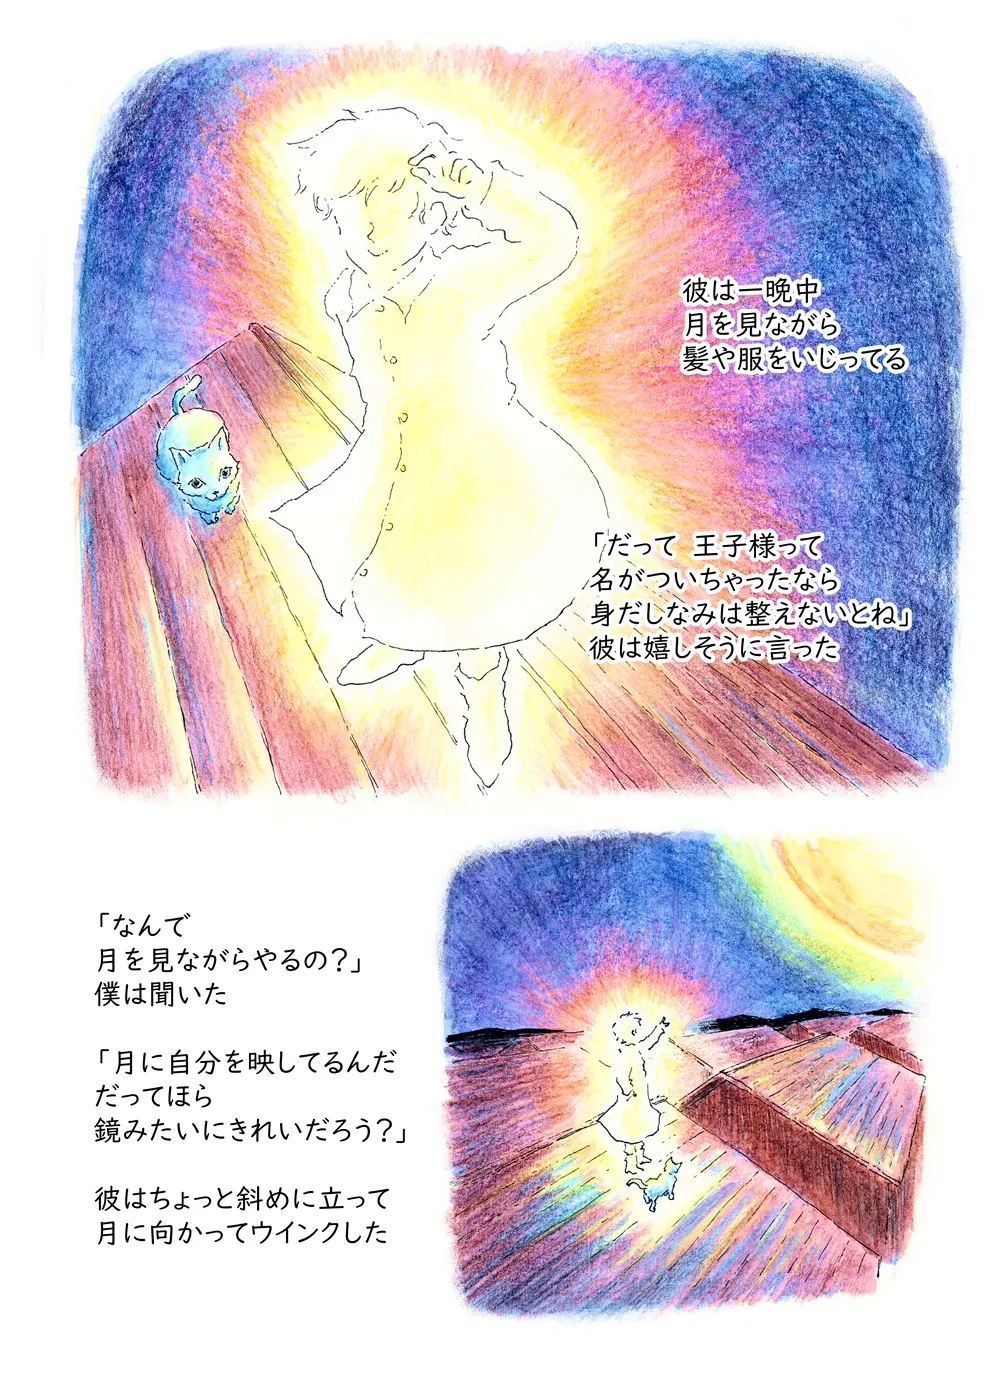 彼は一晩中
月を見ながら
髪や服をいじってる
「だって 王子様って
名がついちゃったなら
身だしなみは整えないとね」
彼は嬉しそうに言った
「なんで
月を見ながらやるの？」
僕は聞いた
「月に自分を映してるんだ
だってほら
鏡みたいにきれいだろう？」
彼はちょっと斜めに立って
月に向かってウインクした